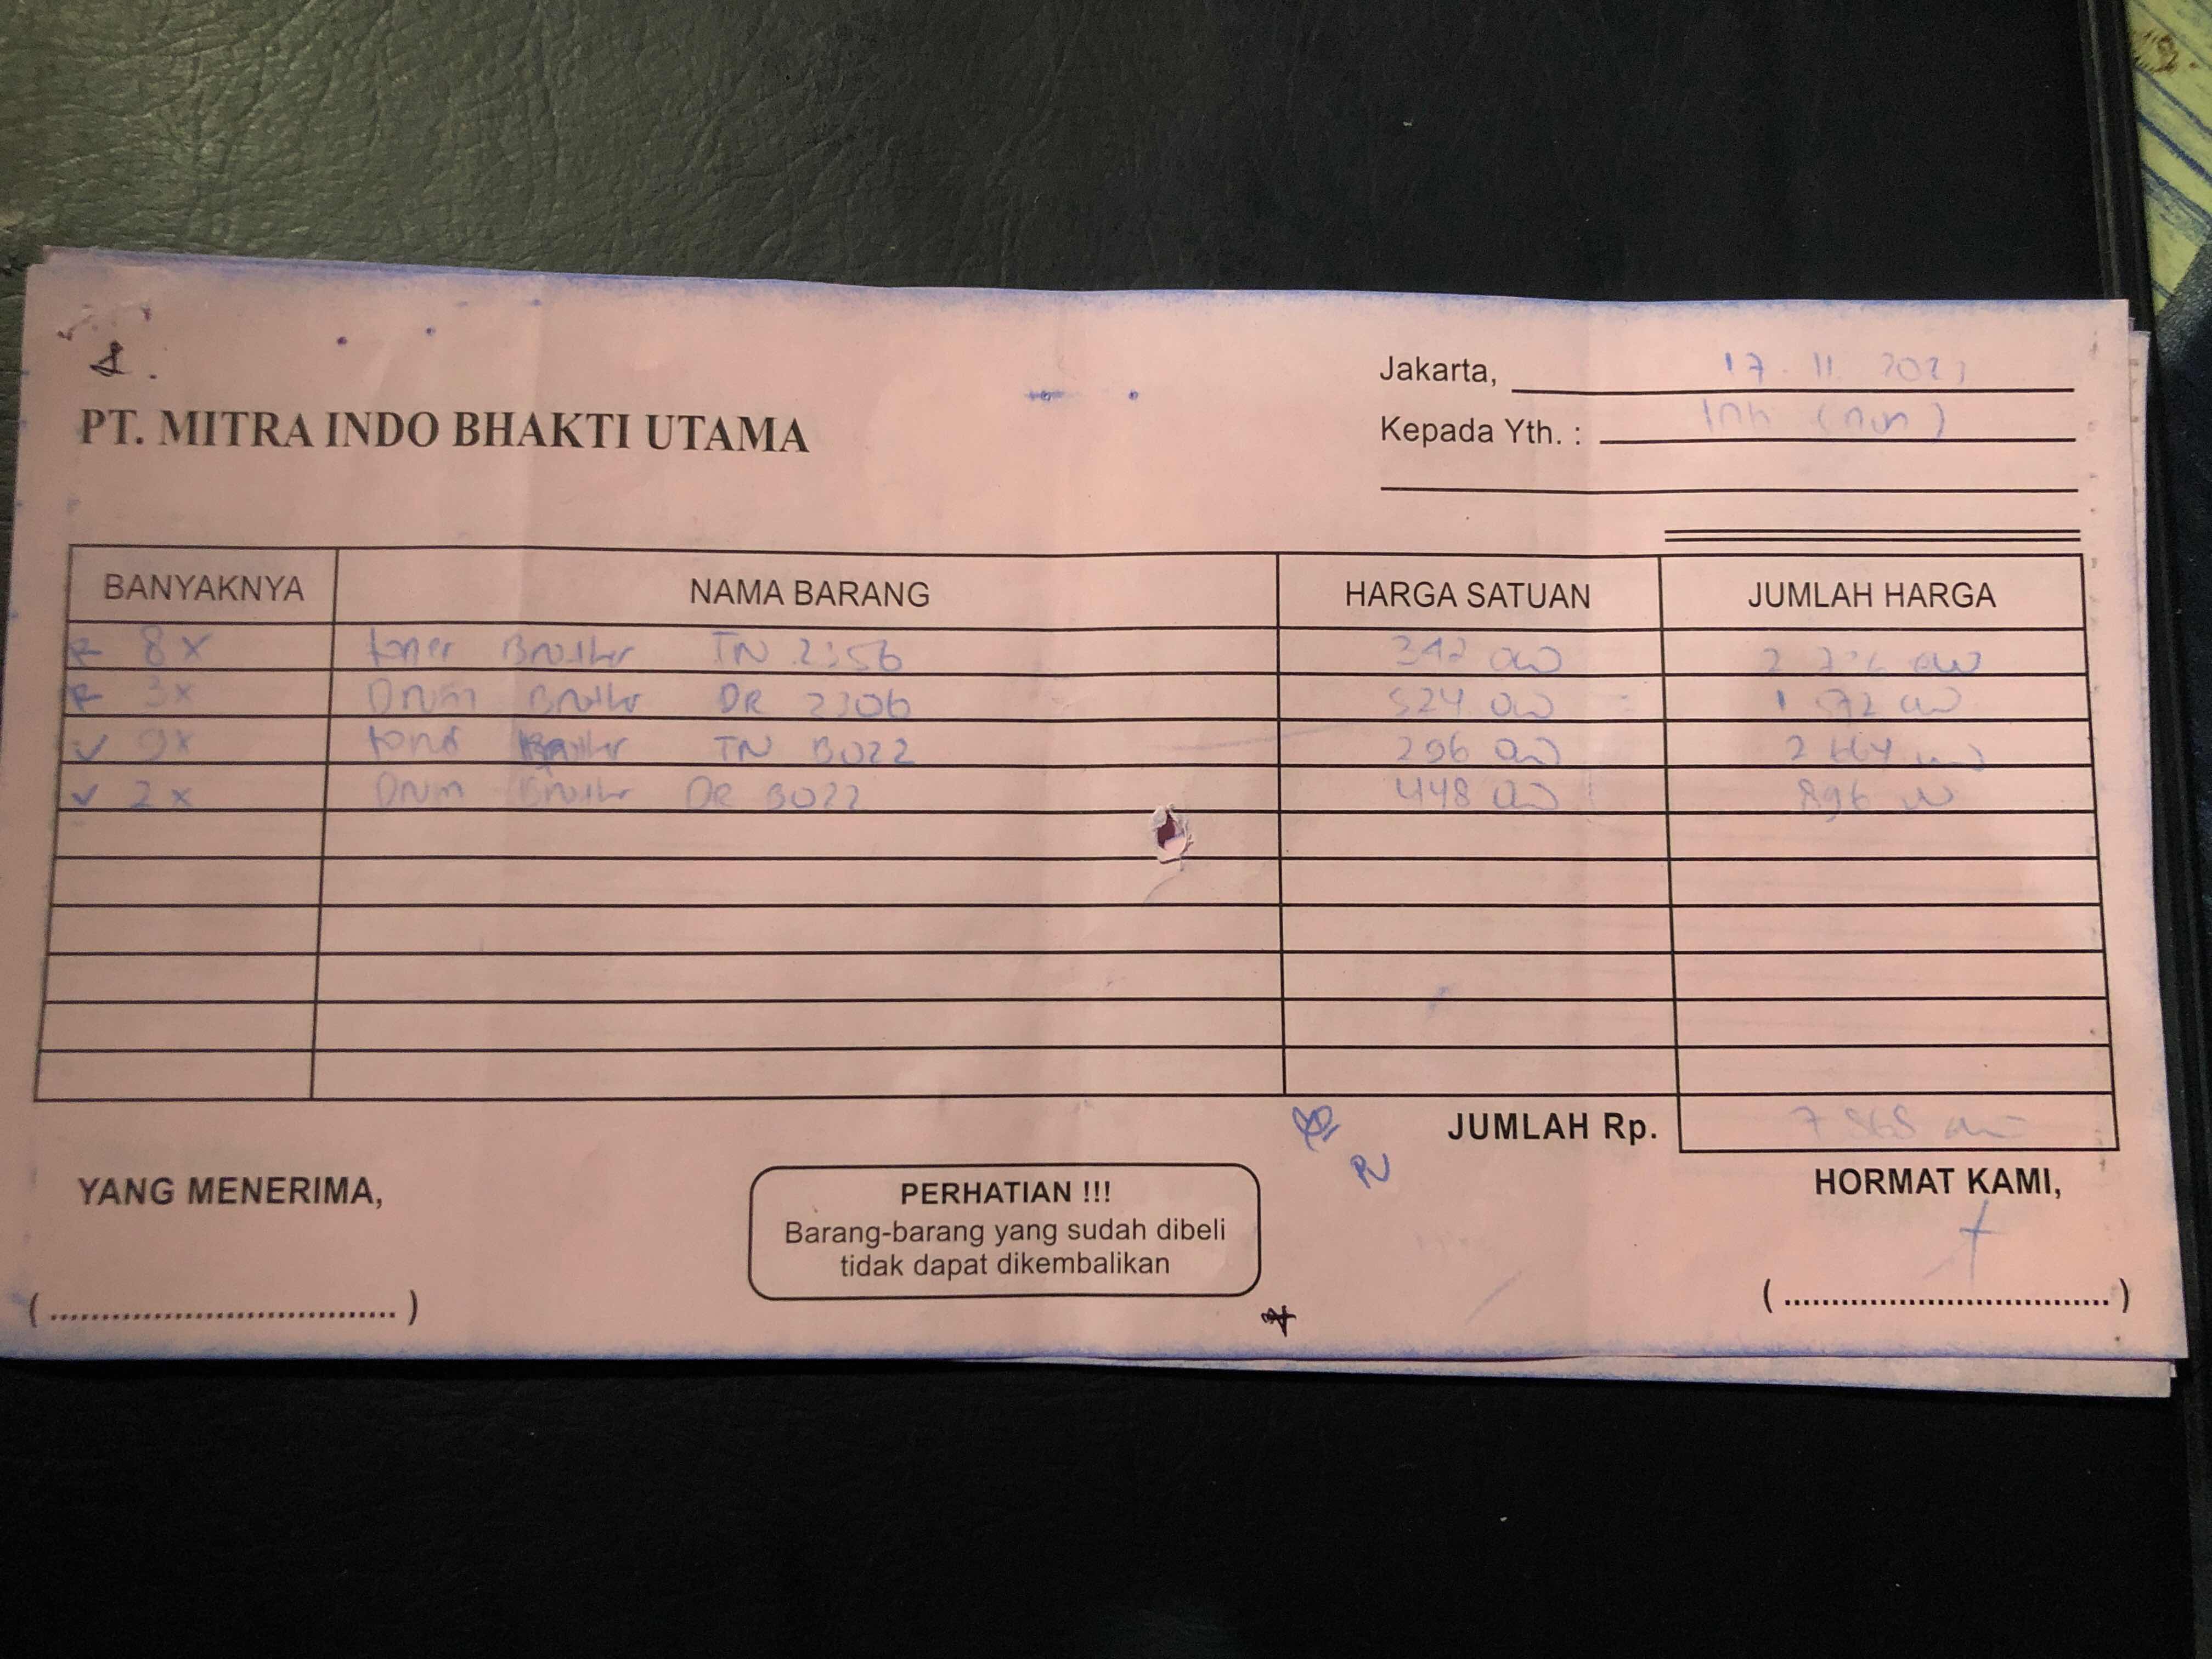 Jakarta, 17. 11. 2023
PT. MITRA INDO BHAKTI UTAMA
Kepada Yth. :
BANYAKNYA NAMA BARANG HARGA SATUAN JUMLAH HARGA
8x toner Brother TN 2356 342 000 2 736 000
3x Drum Brother DR 2306 524 000 1 572 000
9x toner Brother TN B022 296 000 2 664 000
2x Drum Brother DR B022 448 000 896 000
JUMLAH Rp. 7 868 000
YANG MENERIMA,
PERHATIAN !!!
Barang-barang yang sudah dibeli
tidak dapat dikembalikan
HORMAT KAMI,
(....................................)
(....................................)